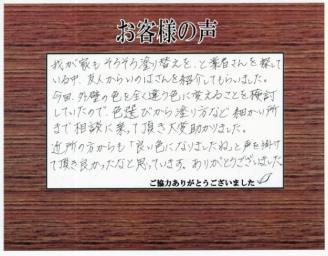 お客様の声
我が家もそろそろ塗り替えを、と業者さんを探して
いる中、友人からいのはさんを紹介してもらいました。
今回、外壁の色を全く違う色に変えることを検討
していたので、色選びから塗り方など細かい所
まで相談に乗って頂き大変助かりました。
近所の方からも「良い色になりましたね」と声を掛け
て頂き良かったなと思っています。ありがとうございました
ご協力ありがとうございました